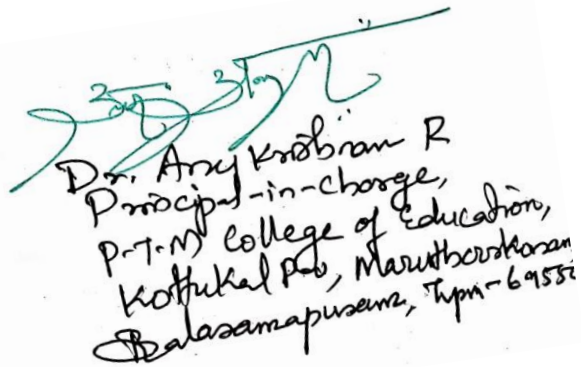 Dr. Krishnan R
Principal-in-charge,
P.T.M College of Education,
Kottukal P.O, Maruthoorkonam
Balaramapuram, Tvpm-69550